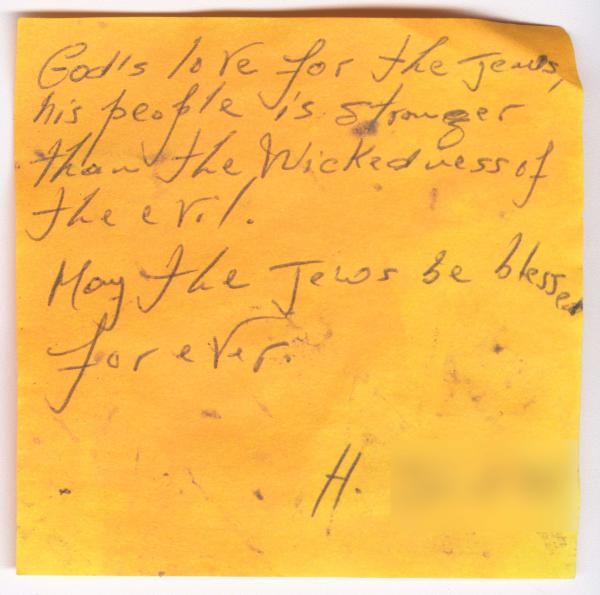 God's love for the Jews,
his people is stronger
than the Wickedness of
the evil.
May the Jews be blessed
forever.
H.